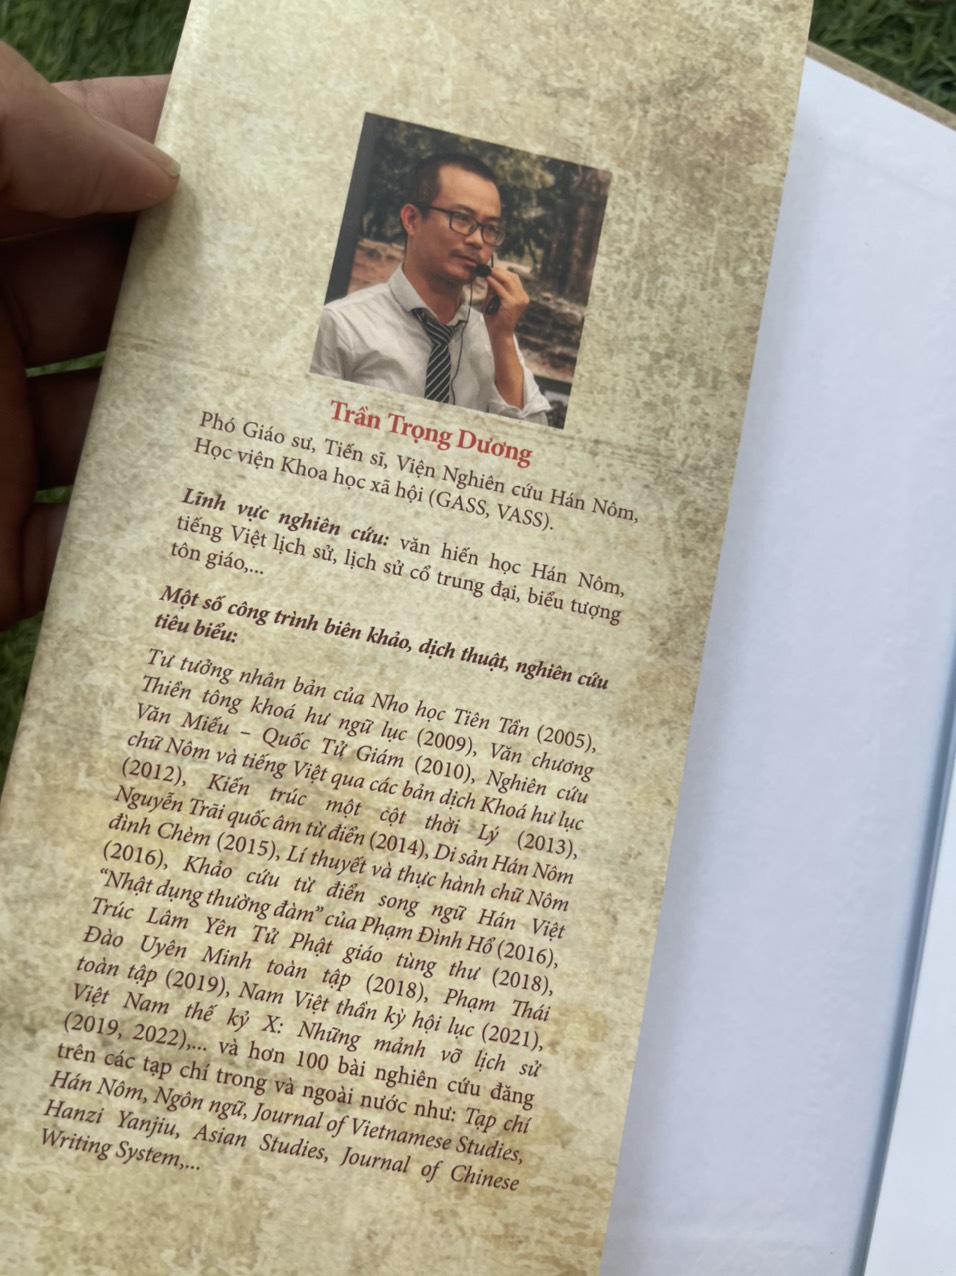 Trần Trọng Dương
Phó Giáo sư, Tiến sĩ, Viện Nghiên cứu Hán Nôm,
Học viện Khoa học xã hội (GASS, VASS).
Lĩnh vực nghiên cứu: văn hiến học Hán Nôm,
tiếng Việt lịch sử, lịch sử cổ trung đại, biểu tượng
tôn giáo,...
Một số công trình biên khảo, dịch thuật, nghiên cứu
tiêu biểu:
Tư tưởng nhân bản của Nho học Tiên Tần (2005),
Thiền tông khoá hư ngữ lục (2009), Văn chương
Văn Miếu – Quốc Tử Giám (2010), Nghiên cứu
chữ Nôm và tiếng Việt qua các bản dịch Khoá hư lục
(2012), Kiến trúc một cột thời Lý (2013),
Nguyễn Trãi quốc âm từ điển (2014), Di sản Hán Nôm
đình Chèm (2015), Lí thuyết và thực hành chữ Nôm
(2016), Khảo cứu từ điển song ngữ Hán Việt
“Nhật dụng thường đàm” của Phạm Đình Hổ (2016),
Trúc Lâm Yên Tử Phật giáo tùng thư (2018),
Đào Uyên Minh toàn tập (2018), Phạm Thái
toàn tập (2019), Nam Việt thần kỳ hội lục (2021),
Việt Nam thế kỷ X: Những mảnh vỡ lịch sử
(2019, 2022),... và hơn 100 bài nghiên cứu đăng
trên các tạp chí trong và ngoài nước như: Tạp chí
Hán Nôm, Ngôn ngữ, Journal of Vietnamese Studies,
Hanzi Yanjiu, Asian Studies, Journal of Chinese
Writing System,...